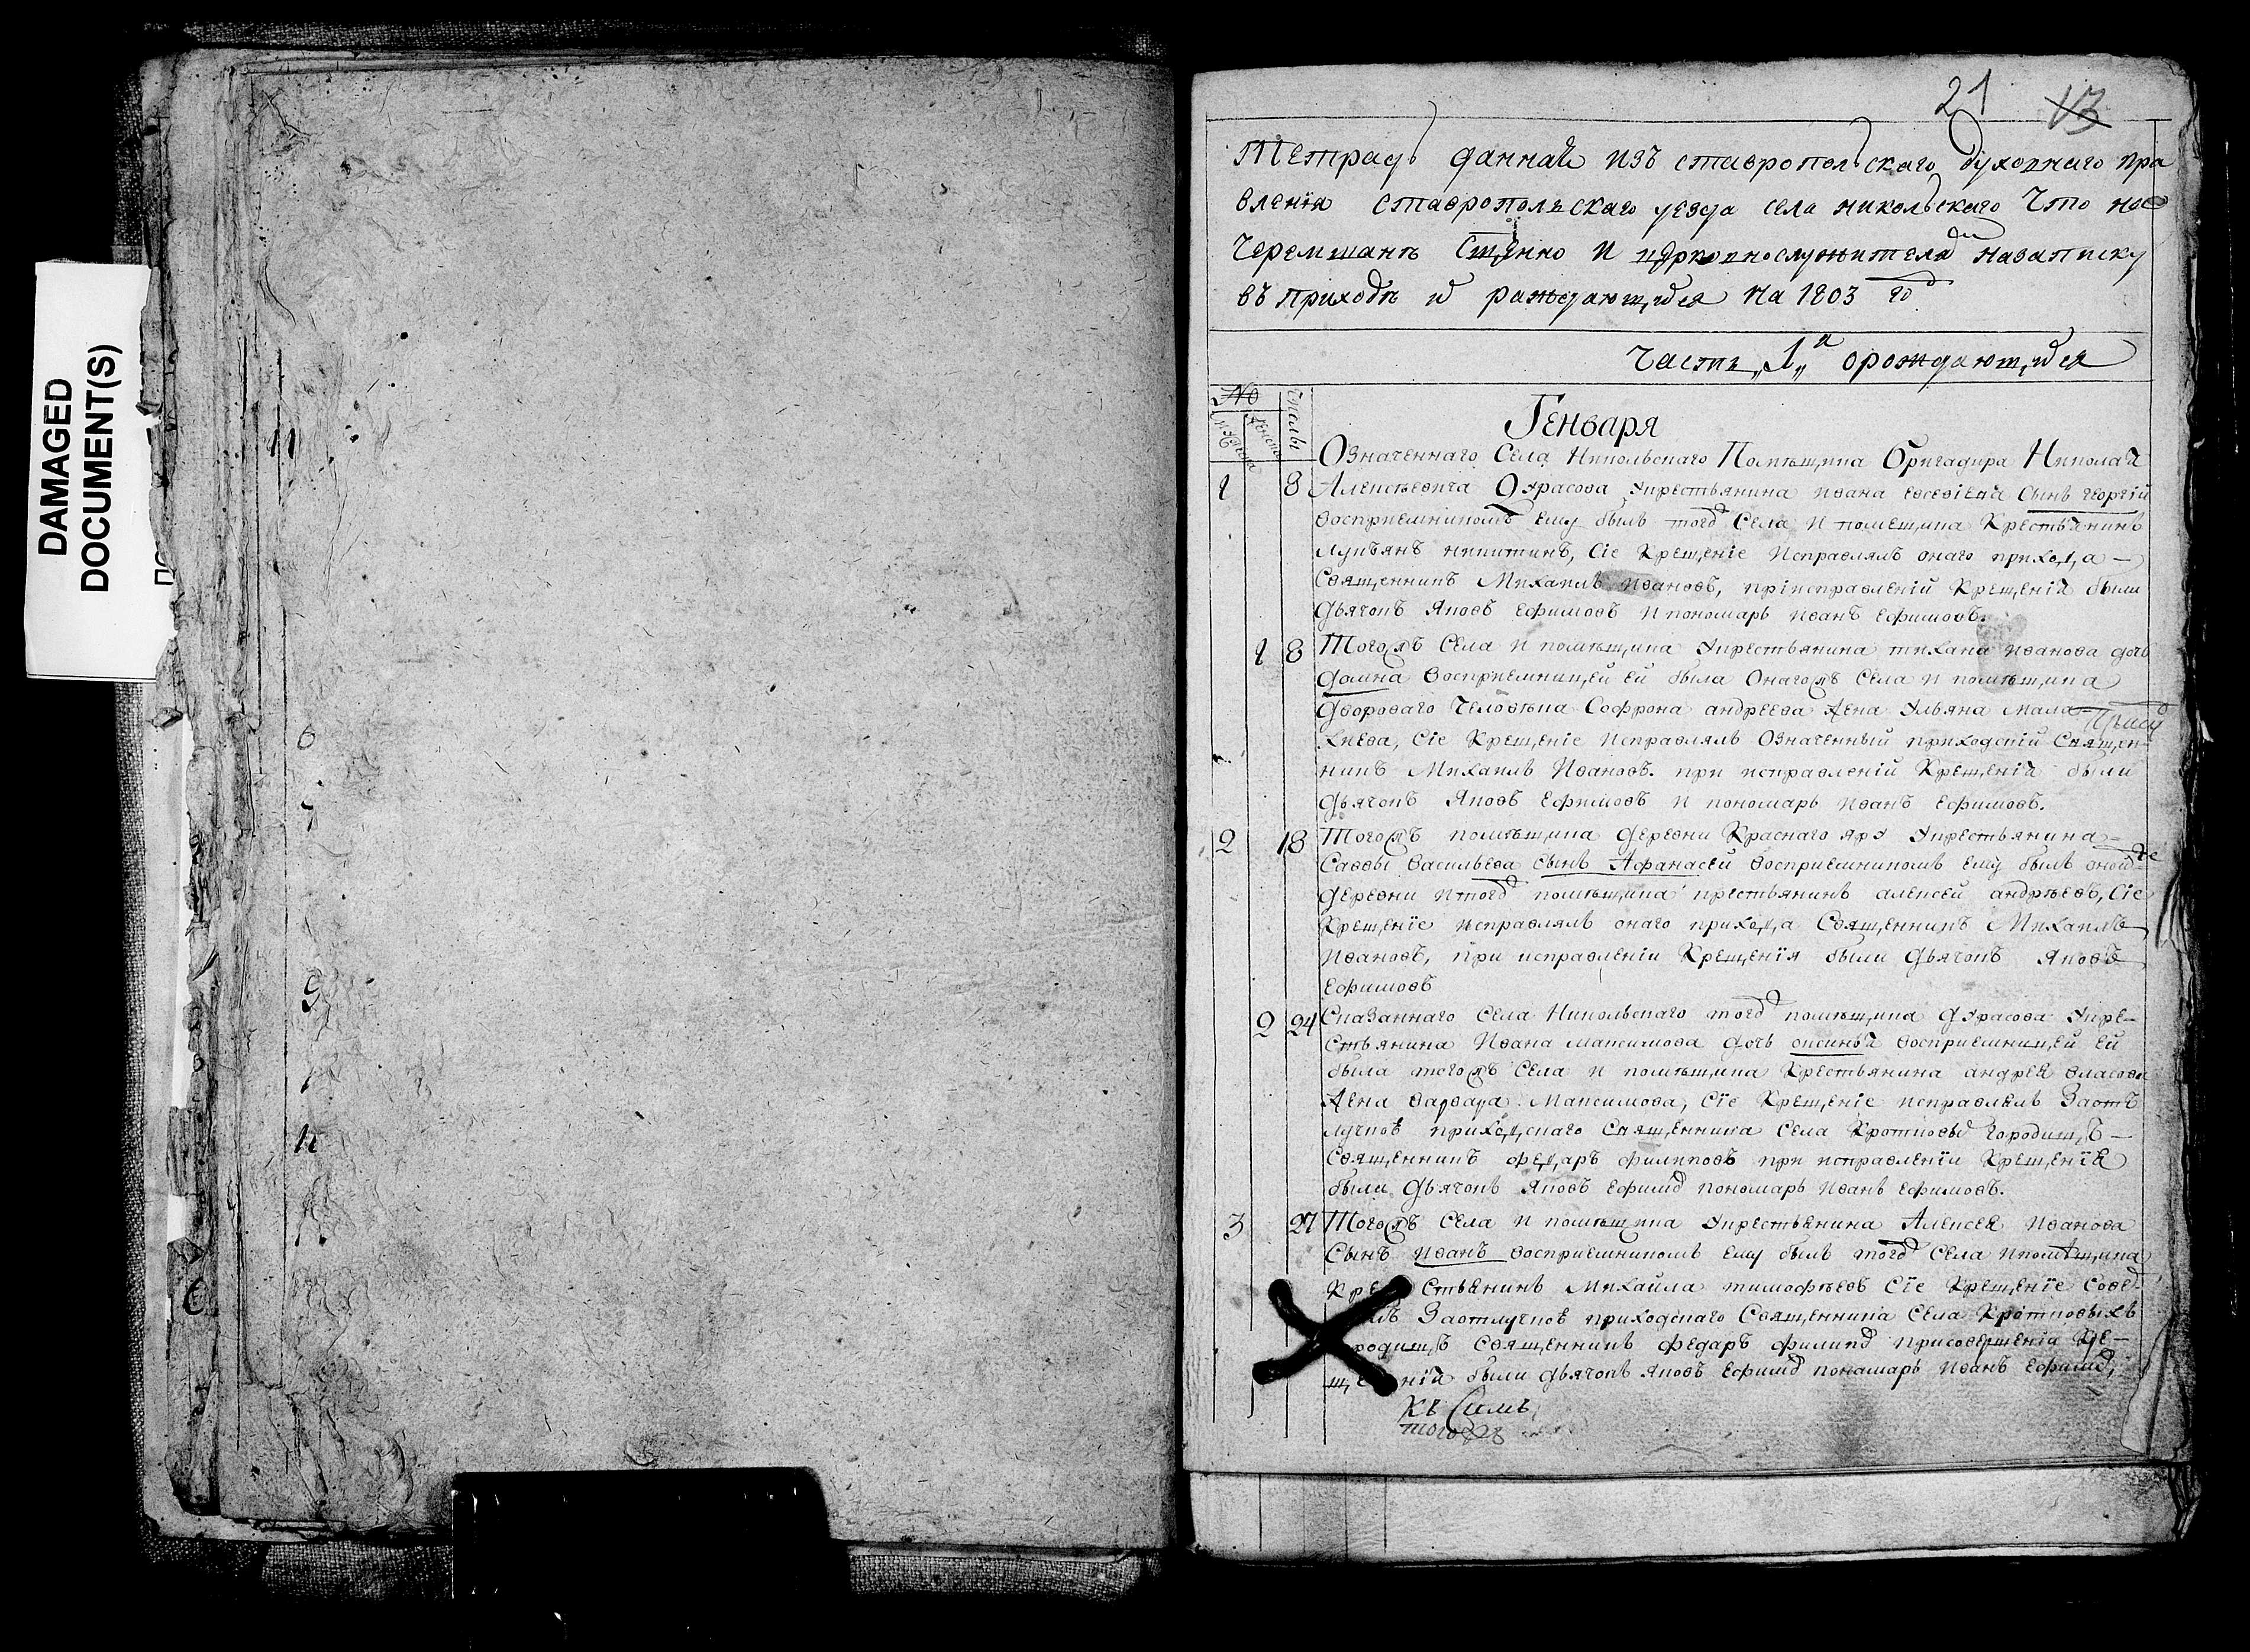 DAMAGED
DOCUMENT(S)
21 13
Тетрадь данная изъ ставропольскаго духовнаго пра
вленія ставропольскаго уезда села никольскаго что на
Черемшанѣ Сщенно и црковнослужителямъ на записку
въ приходѣ и раждающихся на 1803 год
Часть „1„ я о рождающихся
№
числы
Генваря
Означеннаго Села Никольскаго Помѣщика Бригадира Николая
1 8 Алексѣевича Дурасова укрестьянина ивана евсевіева сынъ георгій
восприемникомъ ему былъ того Села и помещика Крестьянинъ
лукьянъ никитинъ, Сіе Крещеніе исправлялъ онаго прихода —
Священникъ Михаилъ ивановъ, приисправленій Крещенія были
Дьячокъ Яковъ ефимовъ и пономарь иванъ ефимовъ.
1 8 Тогожъ Села и помѣщика укрестьянина тихана иванова дочь
домна восприемницей ей была Онагожъ Села и помѣщика
Двороваго человѣка Софрона андреева жена ульяна мала
хиева, Сіе Крещеніе исправлялъ Означенный приходскій Священ-
никъ Михаилъ Ивановъ. при исправленій Крещенія были
Дьячокъ Яковъ ефимовъ и пономарь иванъ ефимовъ.
2 18 Тогожъ помѣщика деревни Краснаго яру укрестьянина
Саввы васильева сынъ Афанасей восприемникомъ ему былъ оной же
деревни и того помѣщика крестьянинъ алексей андрѣевъ, Сіе
Крещеніе исправлялъ онаго прихода Священникъ Михаилъ
ивановъ, при исправленіи Крещенія были Дьячокъ Яковъ
ефимовъ
2 24 Сказаннаго Села Никольскаго того помѣщика Дурасова укре-
стьянина Ивана максимова дочь ксинья восприемницей ей
была тогожъ Села и помѣщика Крестьянина андрея власова
жена варвара Максимова, Сіе Крещеніе исправлялъ Заотъ
лучкой приходскаго Священника Села Кротковы городищъ —
Священникъ федаръ филиповъ при исправленіи Крещенія
были Дьячокъ Яковъ ефимо пономарь иванъ ефимовъ.
3 27 Тогожъ Села и помѣщика укрестьянина Алексея иванова
Сынъ иванъ восприемникомъ ему былъ того Села и помѣщика
Крестьянинъ Михайла тимофѣевъ Сіе Крещеніе
Заотлучкой приходскаго Священника Села Кротковыхъ
Священникъ федаръ филипо
были дьячокъ яковъ ефимо пономарь иванъ ефимо,
Къ Симъ
тогожъ